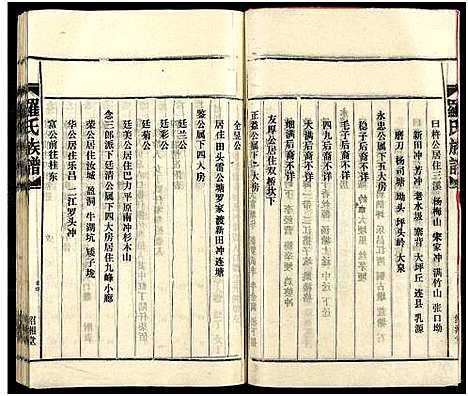 羅氏族譜
曰梓公居住三溪 杨梅山 宋家冲 满竹山 张口坳
新田冲 芳冲 老水圾 寨背 大坪丘 连县 乳源
磨刀 杨司塘 坳头 坪头岭 大泉
永忠公属下五大房
稳子后裔不详
四九后裔不详
细满后裔不详
友厚公居住双桥坎下
正益公属下二大房
全呈公
居住 田头雷公塘罗家渡新田冲连塘
鉴公属下四大房
廷兰公
廷菊公
廷美公居住巴力平原南冲杉木山
念三郎派下清公属下四大房居住九峰小廊
荣公居住汝城 盈洞 牛湖坑 矮子垅
华公居住乐昌 二江罗头冲
富公前往桂东
羅氏族譜